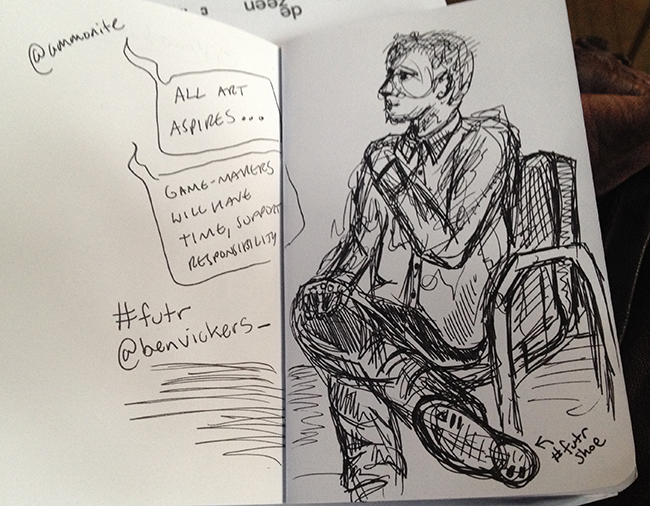 @ammonite
ALL ART
ASPIRES...
GAME-MAKERS
WILL HAVE
TIME, SUPPORT
RESPONSIBILITY
#futr
@benvickers_
#futr
shoe